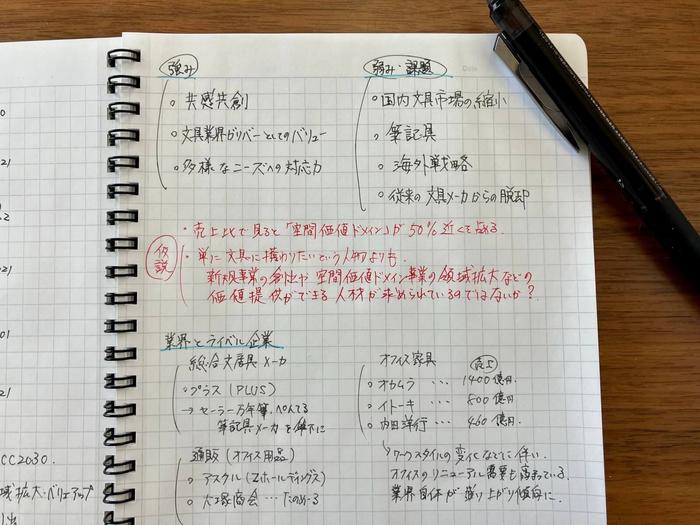 強み
○ 共感共創
○ 文具業界がリバーとしてのバリュー
○ 多様なニーズへの対応力
弱み・課題
○ 国内文具市場の縮小
○ 筆記具
○ 海外戦略
○ 従来の文具メーカからの脱却
仮説
・売上比で見ると「空間価値ドメイン」が50%近くを占める.
・単に文具に携わりたいという人物よりも.
新規事業の創出や空間価値ドメイン事業の領域拡大などの
価値提供ができる人材が求められているのではないか?
業界とライバル企業
総合文房具メーカ
○プラス (PLUS)
→ セーラー万年筆.ぺんてる
筆記具メーカを傘下に
通販 (オフィス用品)
○ アスクル (Zホールディングス)
○ 大塚商会…たのめーる
オフィス家具
売上
○ オカムラ … 1400億円.
○ イトーキ … 800億円
○ 内田洋行 … 460億円
↳ワークスタイルの変化などに伴い.
オフィスのリニューアル需要も高まっている.
業界自体が盛り上がり傾向に.
CC2030.
域拡大・バリューアップ